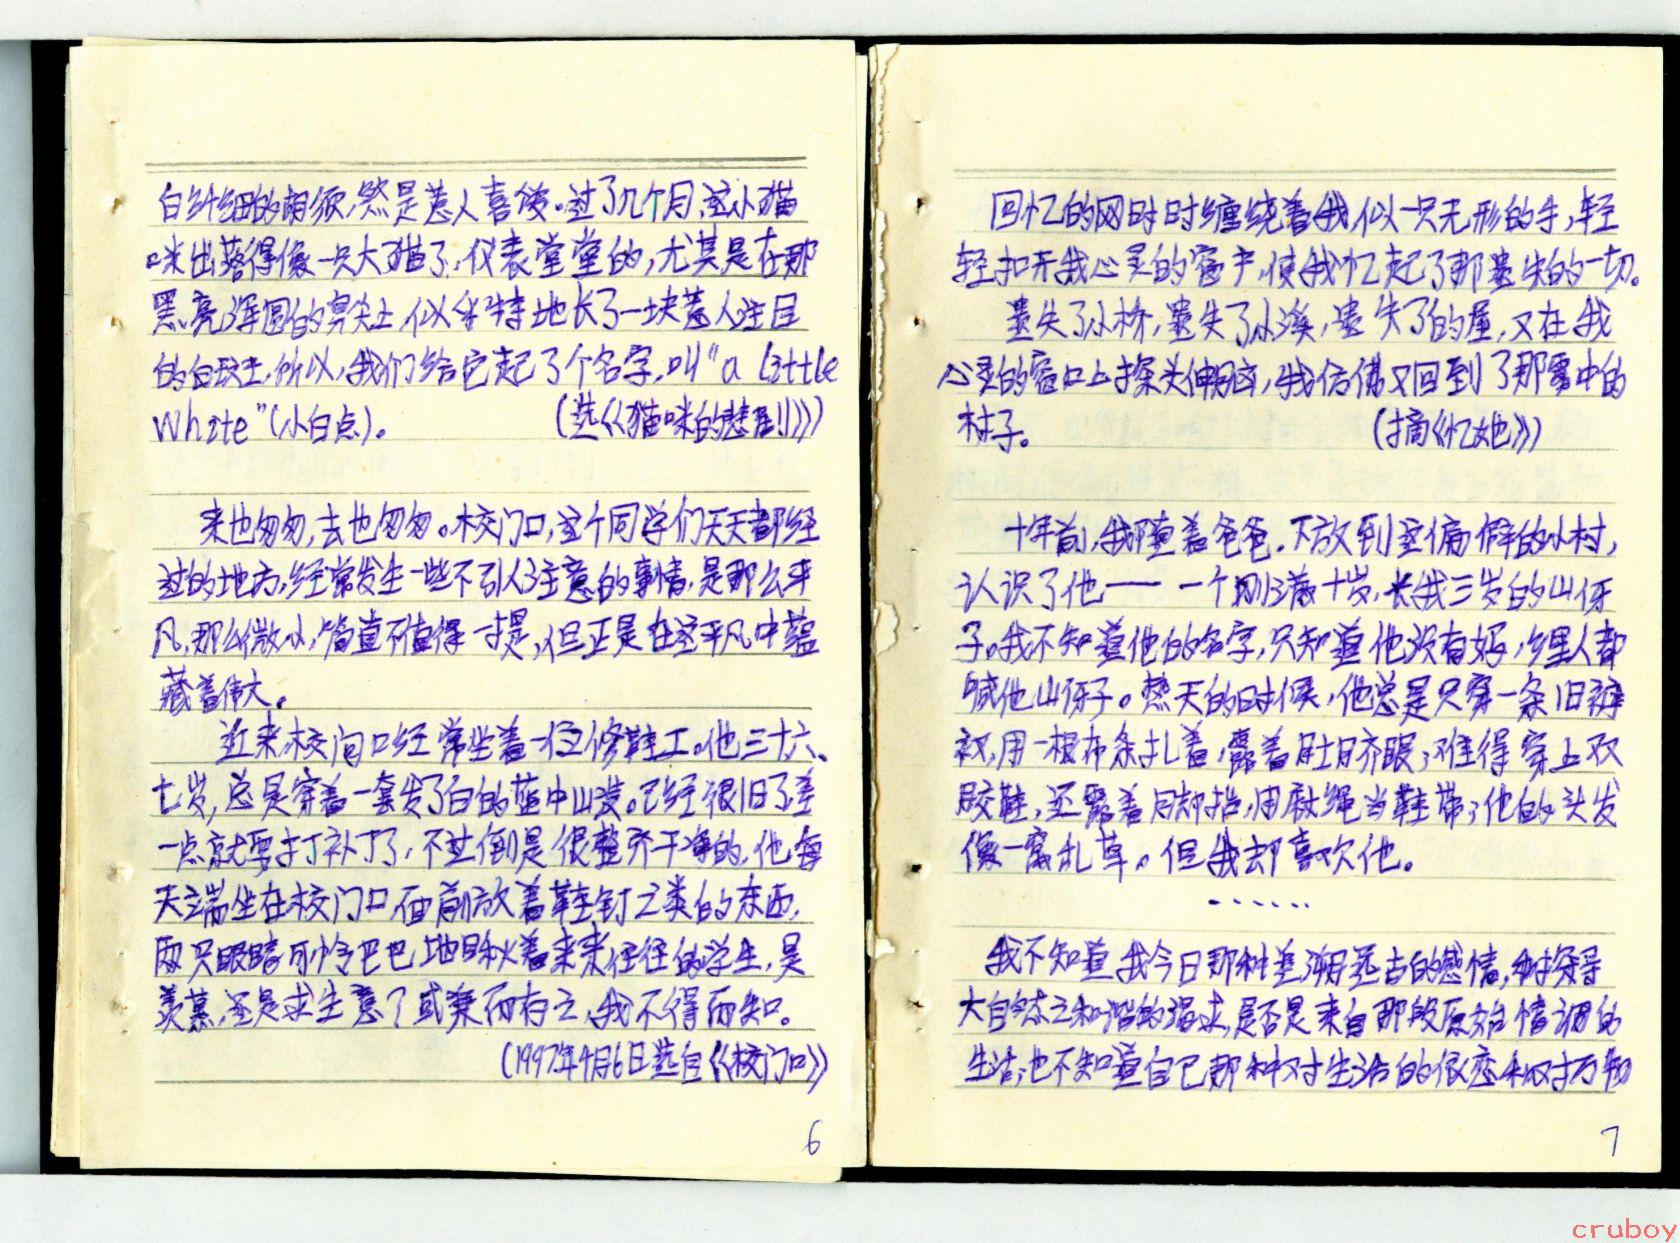 白纤细的胡须,煞是惹人喜爱。过了几个月,这小猫
咪出落得像一只大猫了,仪表堂堂的,尤其是在那
黑亮浑圆的鼻尖上,似乎特地长了一块惹人注目
的白斑,所以,我们给它起了个名字,叫“a little
white”(小白点)。 (选《猫咪的悲剧》)
来也匆匆,去也匆匆。校门口,这个同学们天天都经
过的地方,经常发生一些不引人注意的事情,是那么平
凡,那么微小,简直不值得一提,但正是在这平凡中蕴
藏着伟大。
近来校门口经常坐着一位修鞋工。他三十六、
七岁,总是穿着一套发了白的蓝中山装。已经很旧了差
一点就要打补丁了,不过倒是很整齐干净的,他每
天端坐在校门口,面前放着鞋钉之类的东西,
两只眼睛可怜巴巴地瞅着来来往往的学生,是
羡慕,还是求生意?或兼而有之,我不得而知。
(1997年4月6日选自《校门口》)
6
回忆的网时时缠绕着我,似一只无形的手,轻
轻扣开我心灵的窗户,使我忆起了那遗失的一切。
遗失了小桥,遗失了小溪,遗失了的屋,又在我
心灵的窗口上探头伸脑,我仿佛又回到了那雾中的
村子。 (摘《忆她》)
十年前,我随着爸爸,下放到这偏僻的小村,
认识了他——一个刚满十岁,长我三岁的山伢
子。我不知道他的名字,只知道他没有妈,乡里人都
喊他山伢子。热天的时候,他总是只穿一条旧裤
衩,用一根布条扎着,露着肚脐眼;难得穿上双
胶鞋,还露着脚指,用麻绳当鞋带;他的头发
像一窝乱草。但我却喜欢他。
······
我不知道,我今日那种追溯远古的感情,和探寻
大自然之和谐的渴求,是否是来自那段原始情调的
生活;也不知道自己那种对生活的依恋和对万物
7
cruboy